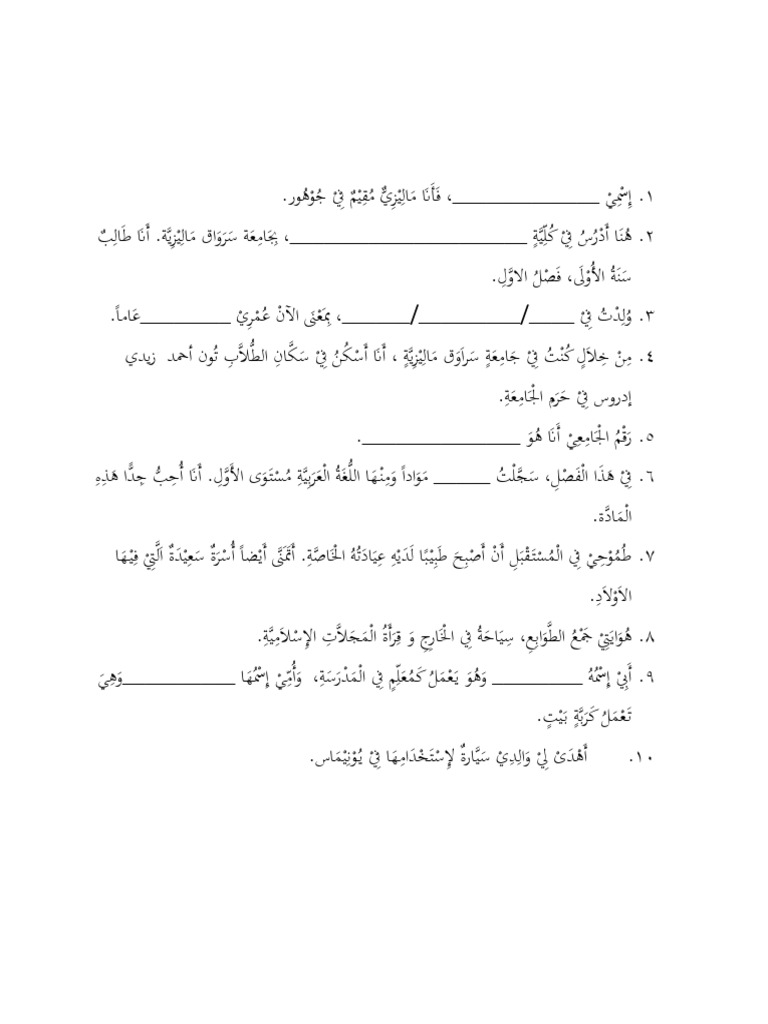 ١. إِسْمِيْ ________________، فَأَنَا مَالِيْزِيٌّ مُقِيْمٌ فِيْ جُوْهُور.
٢. هُنَا أَدْرُسُ فِيْ كُلِّيَّةٍ __________________________، بِجَامِعَة سَرَوَاق مَالِيْزِيَّة. أَنَا طَالِبٌ
سَنَةُ الأُوْلَى، فَصْلُ الاوَّلِ.
٣. وُلِدْتُ فِيْ _____/___________/________، بِمَعْنَى الآنْ عُمْرِيْ __________عَاماً.
٤. مِنْ خِلاَلٍ كُنْتُ فِيْ جَامِعَةٍ سَراَوَق مَالِيْزِيَّةٍ ، أَنَا أَسْكُنُ فِيْ سَكَّانِ الطُّلاَّبِ تُون أحمد زيدي
إدروس فِيْ حَرَمِ الْجَامِعَةِ.
٥. رَقْمُ الجَامِعِيْ أَنَا هُوَ __________________.
٦. فِيْ هَذَا الْفَصْلِ، سَجَّلْتُ ______ مَوَاداً وَمِنْهَا اللُّغَةُ الْعَرَبِيَّةِ مُسْتَوَى الأَوَّلِ. أَنَا أُحِبُّ جِدًّا هَذِهِ
الْمَادَّة.
٧. طُمُوْحِيْ فِي الْمُسْتَقْبَلِ أَنْ أَصْبِحَ طَبِيْبًا لَدَيْهِ عِيَادَتُهُ الْخَاصَّةِ. أَتَمَنَّى أَيْضاً أُسْرَةٌ سَعِيْدَةٌ اَلَّتِيْ فِيْهَا
الاَوْلاَدِ.
٨. هُوَايَتِيْ جَمْعُ الطَّوَابِعِ، سِيَاحَةُ فِي الْخَارِجِ وَ قِرَأَةُ الْمَجَلاَّتِ الإِسْلاَمِيَّةِ.
٩. أَبِيْ إِسْمُهُ __________ وَهُوَ يَعْمَلُ كَمُعَلِّمٍ فِي الْمَدْرَسَةِ، وَأُمِّيْ إِسْمُهَا ____________وَهِيَ
تَعْمَلُ كَرَبَّةٍ بَيْتٍ.
١٠. أَهْدَىْ لِيْ وَالِدِيْ سَيَّارةٌ لإِسْتَخْدَامِهَا فِيْ يُوْنِيْمَاس.